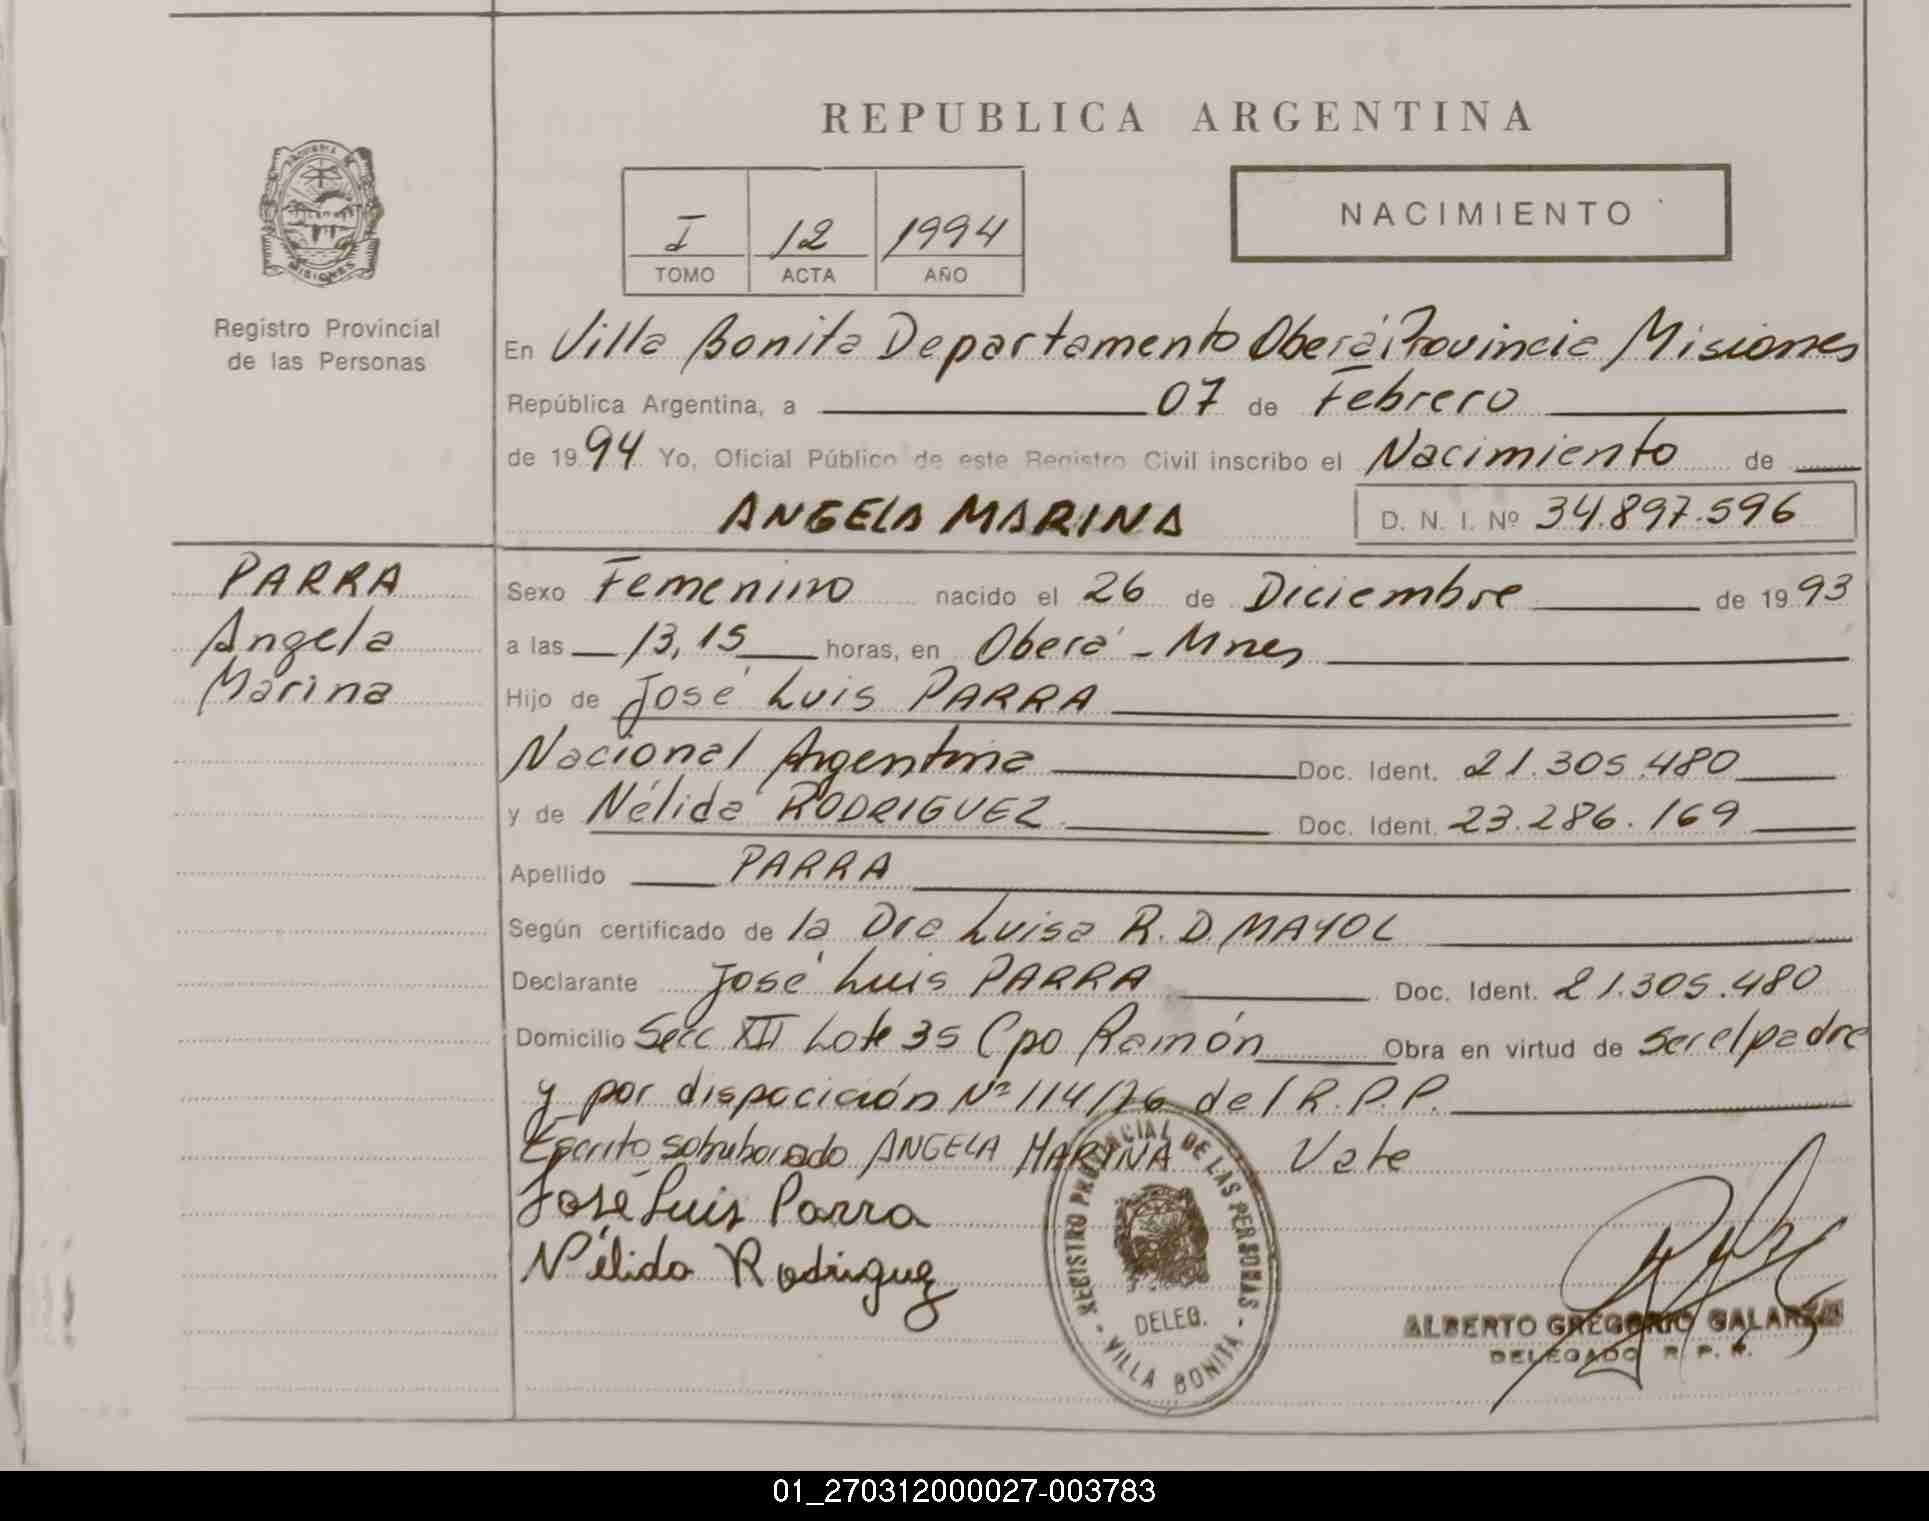 REPUBLICA ARGENTINA
I 12 1994
TOMO ACTA AÑO
NACIMIENTO
PROVINCIA DE
MISIONES
Registro Provincial
de las Personas
En Villa Bonita Departamento Oberá, Provincia Misiones
República Argentina, a 07 de Febrero
de 1994 Yo, Oficial Público de este Registro Civil inscribo el Nacimiento de
ANGELA MARINA D. N. I. Nº 34.897.596
PARRA
Angela
Marina
Sexo Femenino nacido el 26 de Diciembre de 1993
a las 13,15 horas, en Oberá - Mnes
Hijo de José Luis PARRA
Nacional Argentina Doc. Ident. 21.305.480
y de Nélida RODRIGUEZ Doc. Ident. 23.286.169
Apellido PARRA
Según certificado de la Dra Luisa R. D. MAYOL
Declarante José Luis PARRA Doc. Ident. 21.305.480
Domicilio Secc XII Lote 35 Cpo Ramón Obra en virtud de ser el padre
y por dispocición Nº 114/76 del R.P.P.
Escrito sobreborrado ANGELA MARINA Vale
José Luis Parra
Nélida Rodriguez
REGISTRO PROVINCIAL DE LAS PERSONAS
DELEG.
- VILLA BONITA -
ALBERTO GREGORIO GALARZA
DELEGADO R. P. P.
01_270312000027-003783